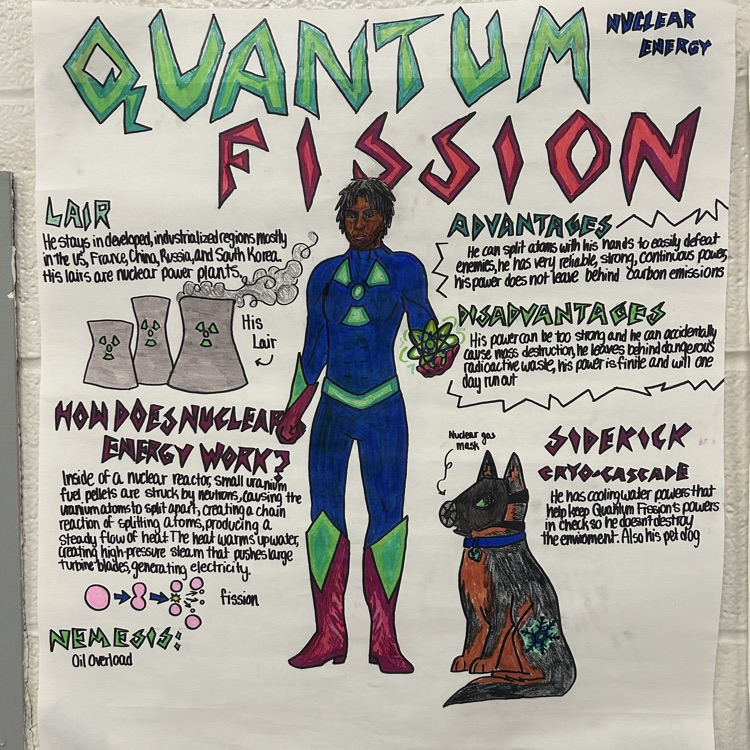 QUANTUM
FISSION
NUCLEAR
ENERGY
LAIR
He stays in developed, industrialized regions mostly
in the US, France, China, Russia, and South Korea.
His lairs are nuclear power plants.
His
Lair
HOW DOES NUCLEAR
ENERGY WORK?
Inside of a nuclear reactor, small uranium
fuel pellets are struck by neutrons, causing the
uranium atoms to split apart, creating a chain
reaction of splitting atoms, producing a
steady flow of heat. The heat warms up water,
creating high-pressure steam that pushes large
turbine blades, generating electricity.
fission
NEMESIS:
Oil Overload
ADVANTAGES
He can split atoms with his hands to easily defeat
enemies, he has very reliable, strong, continuous power,
his power does not leave behind carbon emissions
DISADVANTAGES
His power can be too strong and he can accidentally
cause mass destruction, he leaves behind dangerous
radioactive waste, his power is finite and will one
day run out
Nuclear gas
mask
SIDEKICK
CRYO-CASCADE
He has cooling water powers that
help keep Quantum Fission's powers
in check so he doesn't destroy
the enviroment. Also his pet dog